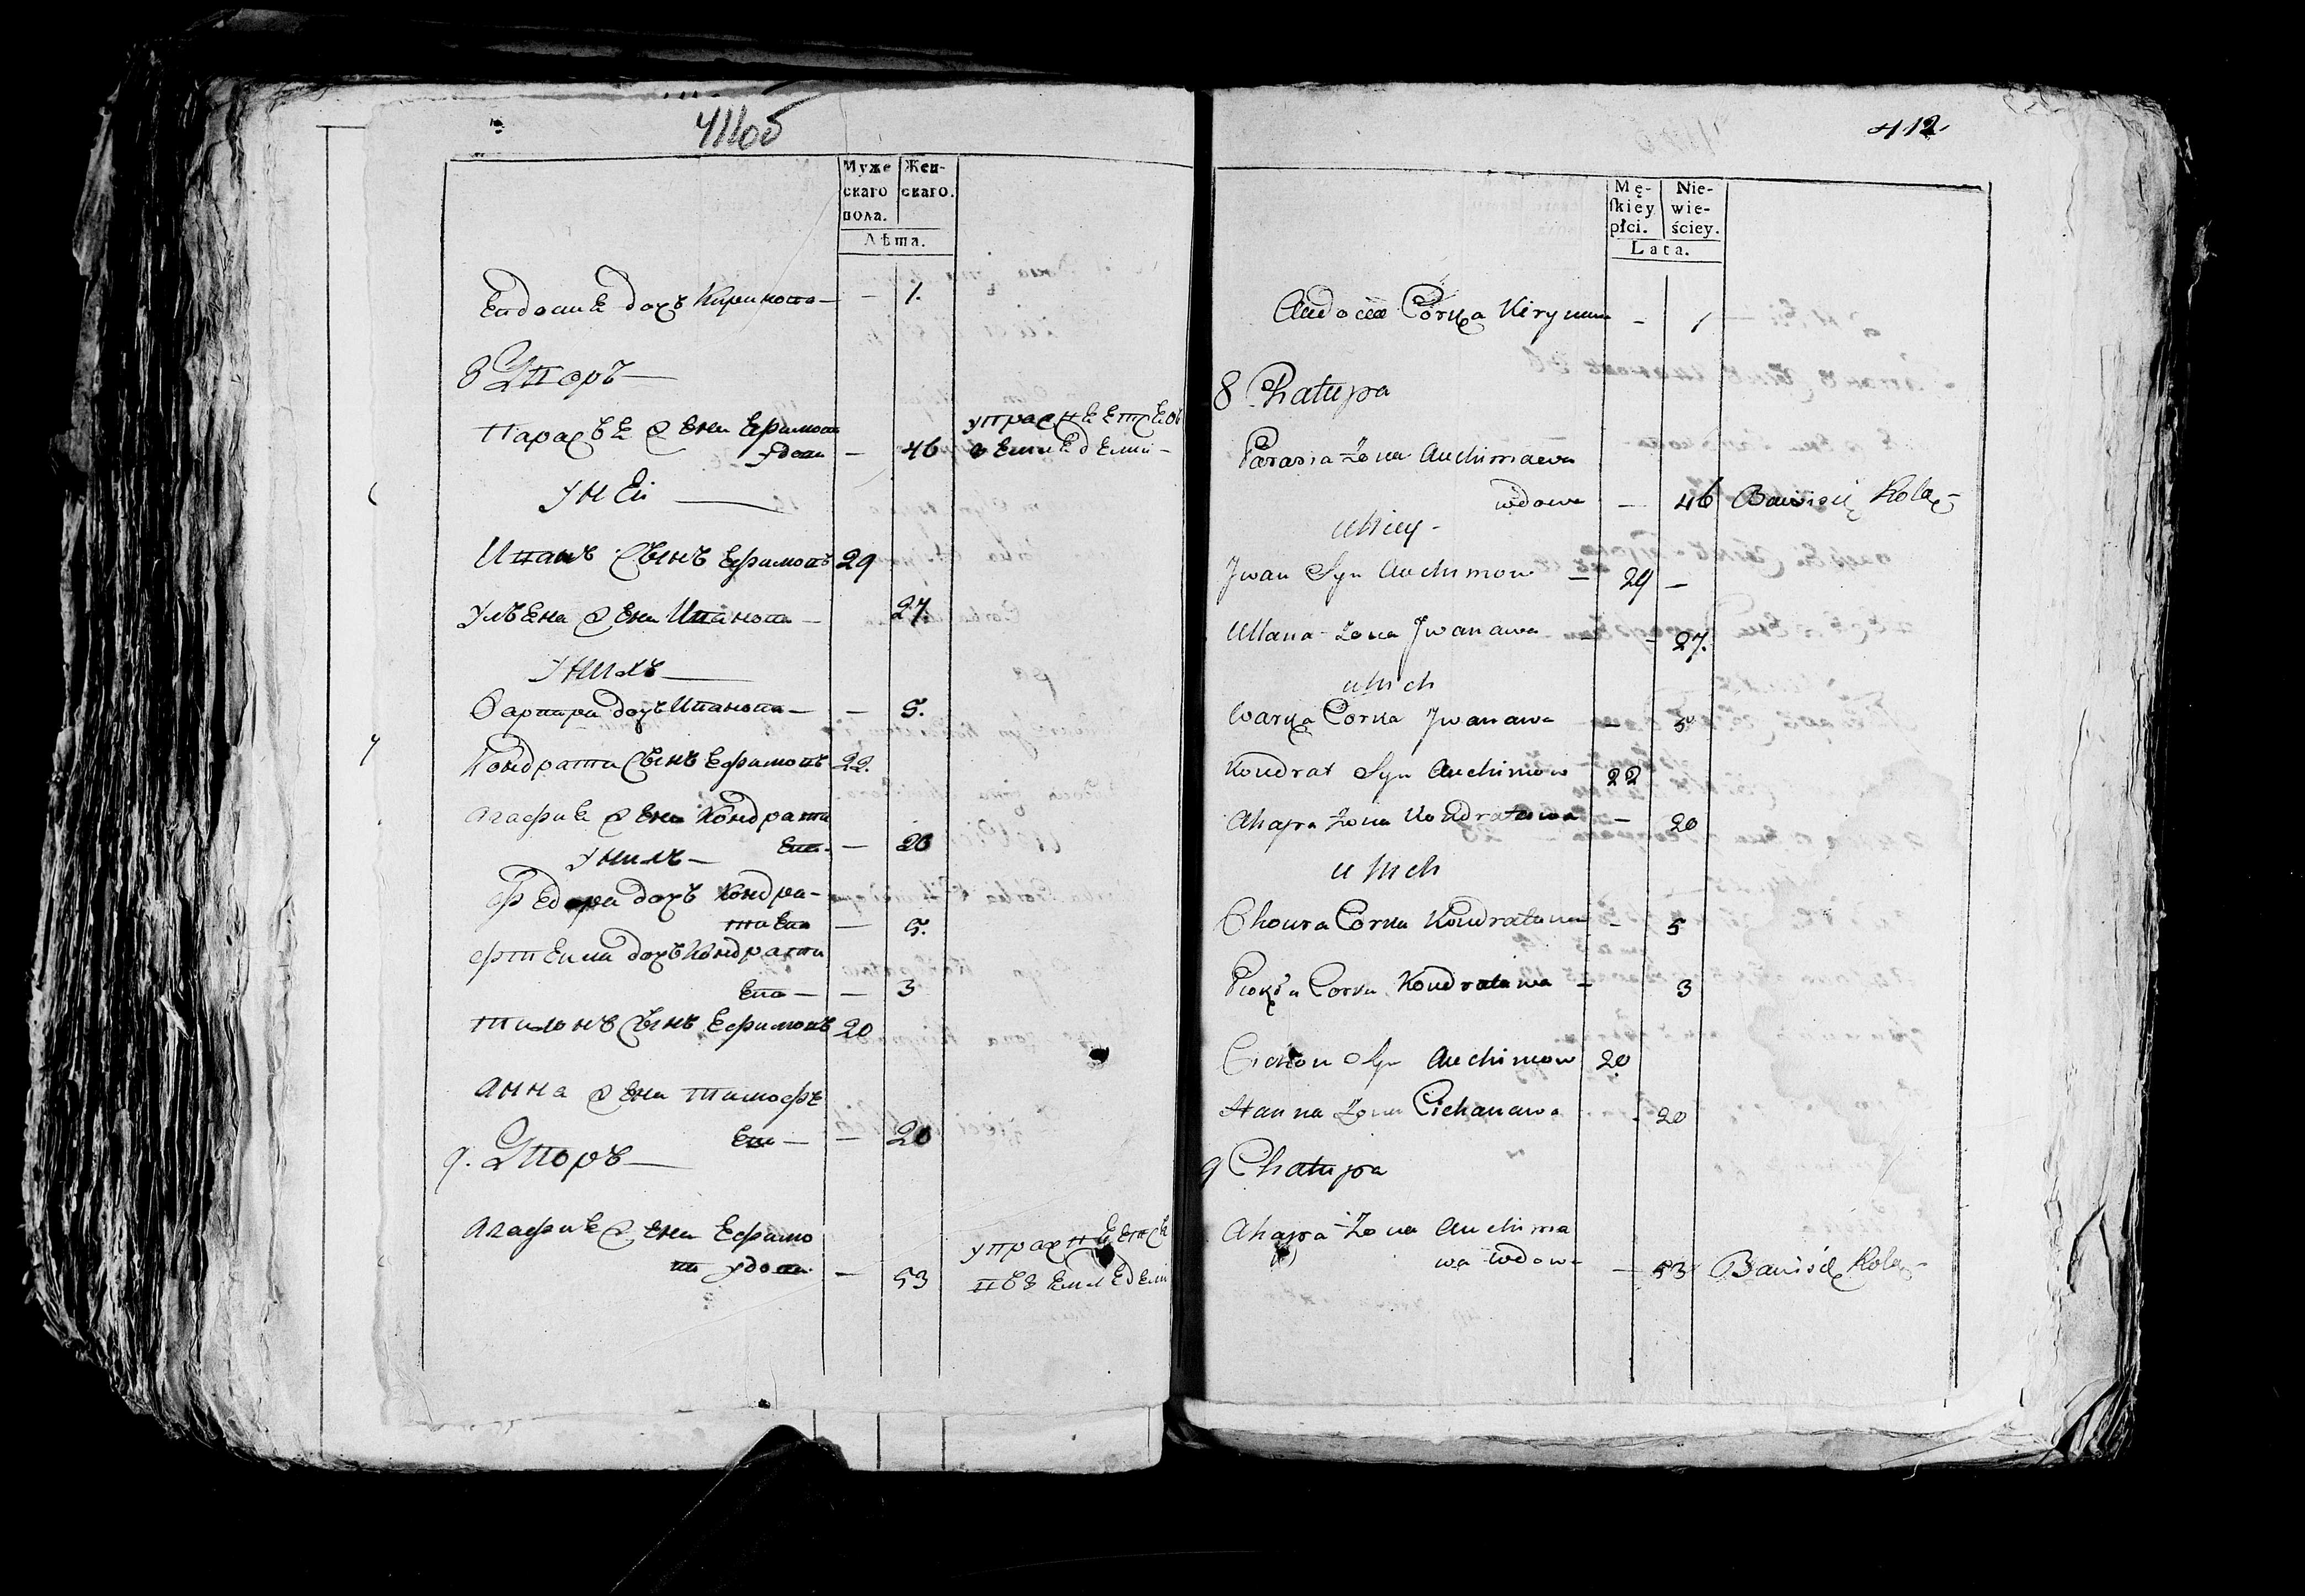 411об
Муже Жен-
скаго скаго.
пола.
Лѣта.
Евдоши Е дочъ Кирикова — — 1.
8 Дворъ —
Парасъ Е жена Ефимова упражнЕЕтсЕ въ
удова — 46 земледЕлии —
у ней —
Иванъ сынъ Ефимовъ 29
УлъЕна жЕна Иванова — 27.
у нихъ —
Варвара дочъ Иванова — — 5.
Кондрати сынъ Ефимовъ 22.
Агафи Е жЕна Кондрати
Ева — — 20
у нихъ —
фЕдора дочъ Кондра-
тиЕва — 5.
дочъ Кондрати
Ева — — 3
Тихонъ сынъ Ефимовъ 20
Анна жЕна Тимофѣ
Ева — — 20
9. Дворъ —
Агафи Е жЕна Ефимо
ва удова — 53
412
Mę- Nie-
ſkiey wie-
płci. ściey.
Lata.
Audocia Corka Kirykowa – 1
8 Chatupa
Parasia Zona Auchimawa
wdowa — 46 Bawi się Rolą –
u Niey –
Jwan Syn Auchimow — 29 —
Ullana Zona Jwanawa – – 27.
u Nich
Warka Corka Jwanawa — 5
Kondrat Syn Auchimow 22
Ahapa Zona Kondratowa – 20
u Nich
Chowra Corka Kondratowa – 5
Corka Kondratowa – 3
Cichon Syn Auchimow 20
Hanna Zona Cichanawa - 20
9 Chatupa
Ahapa Zona Auchima
wa wdowa — 53 Bawi się Rolą –